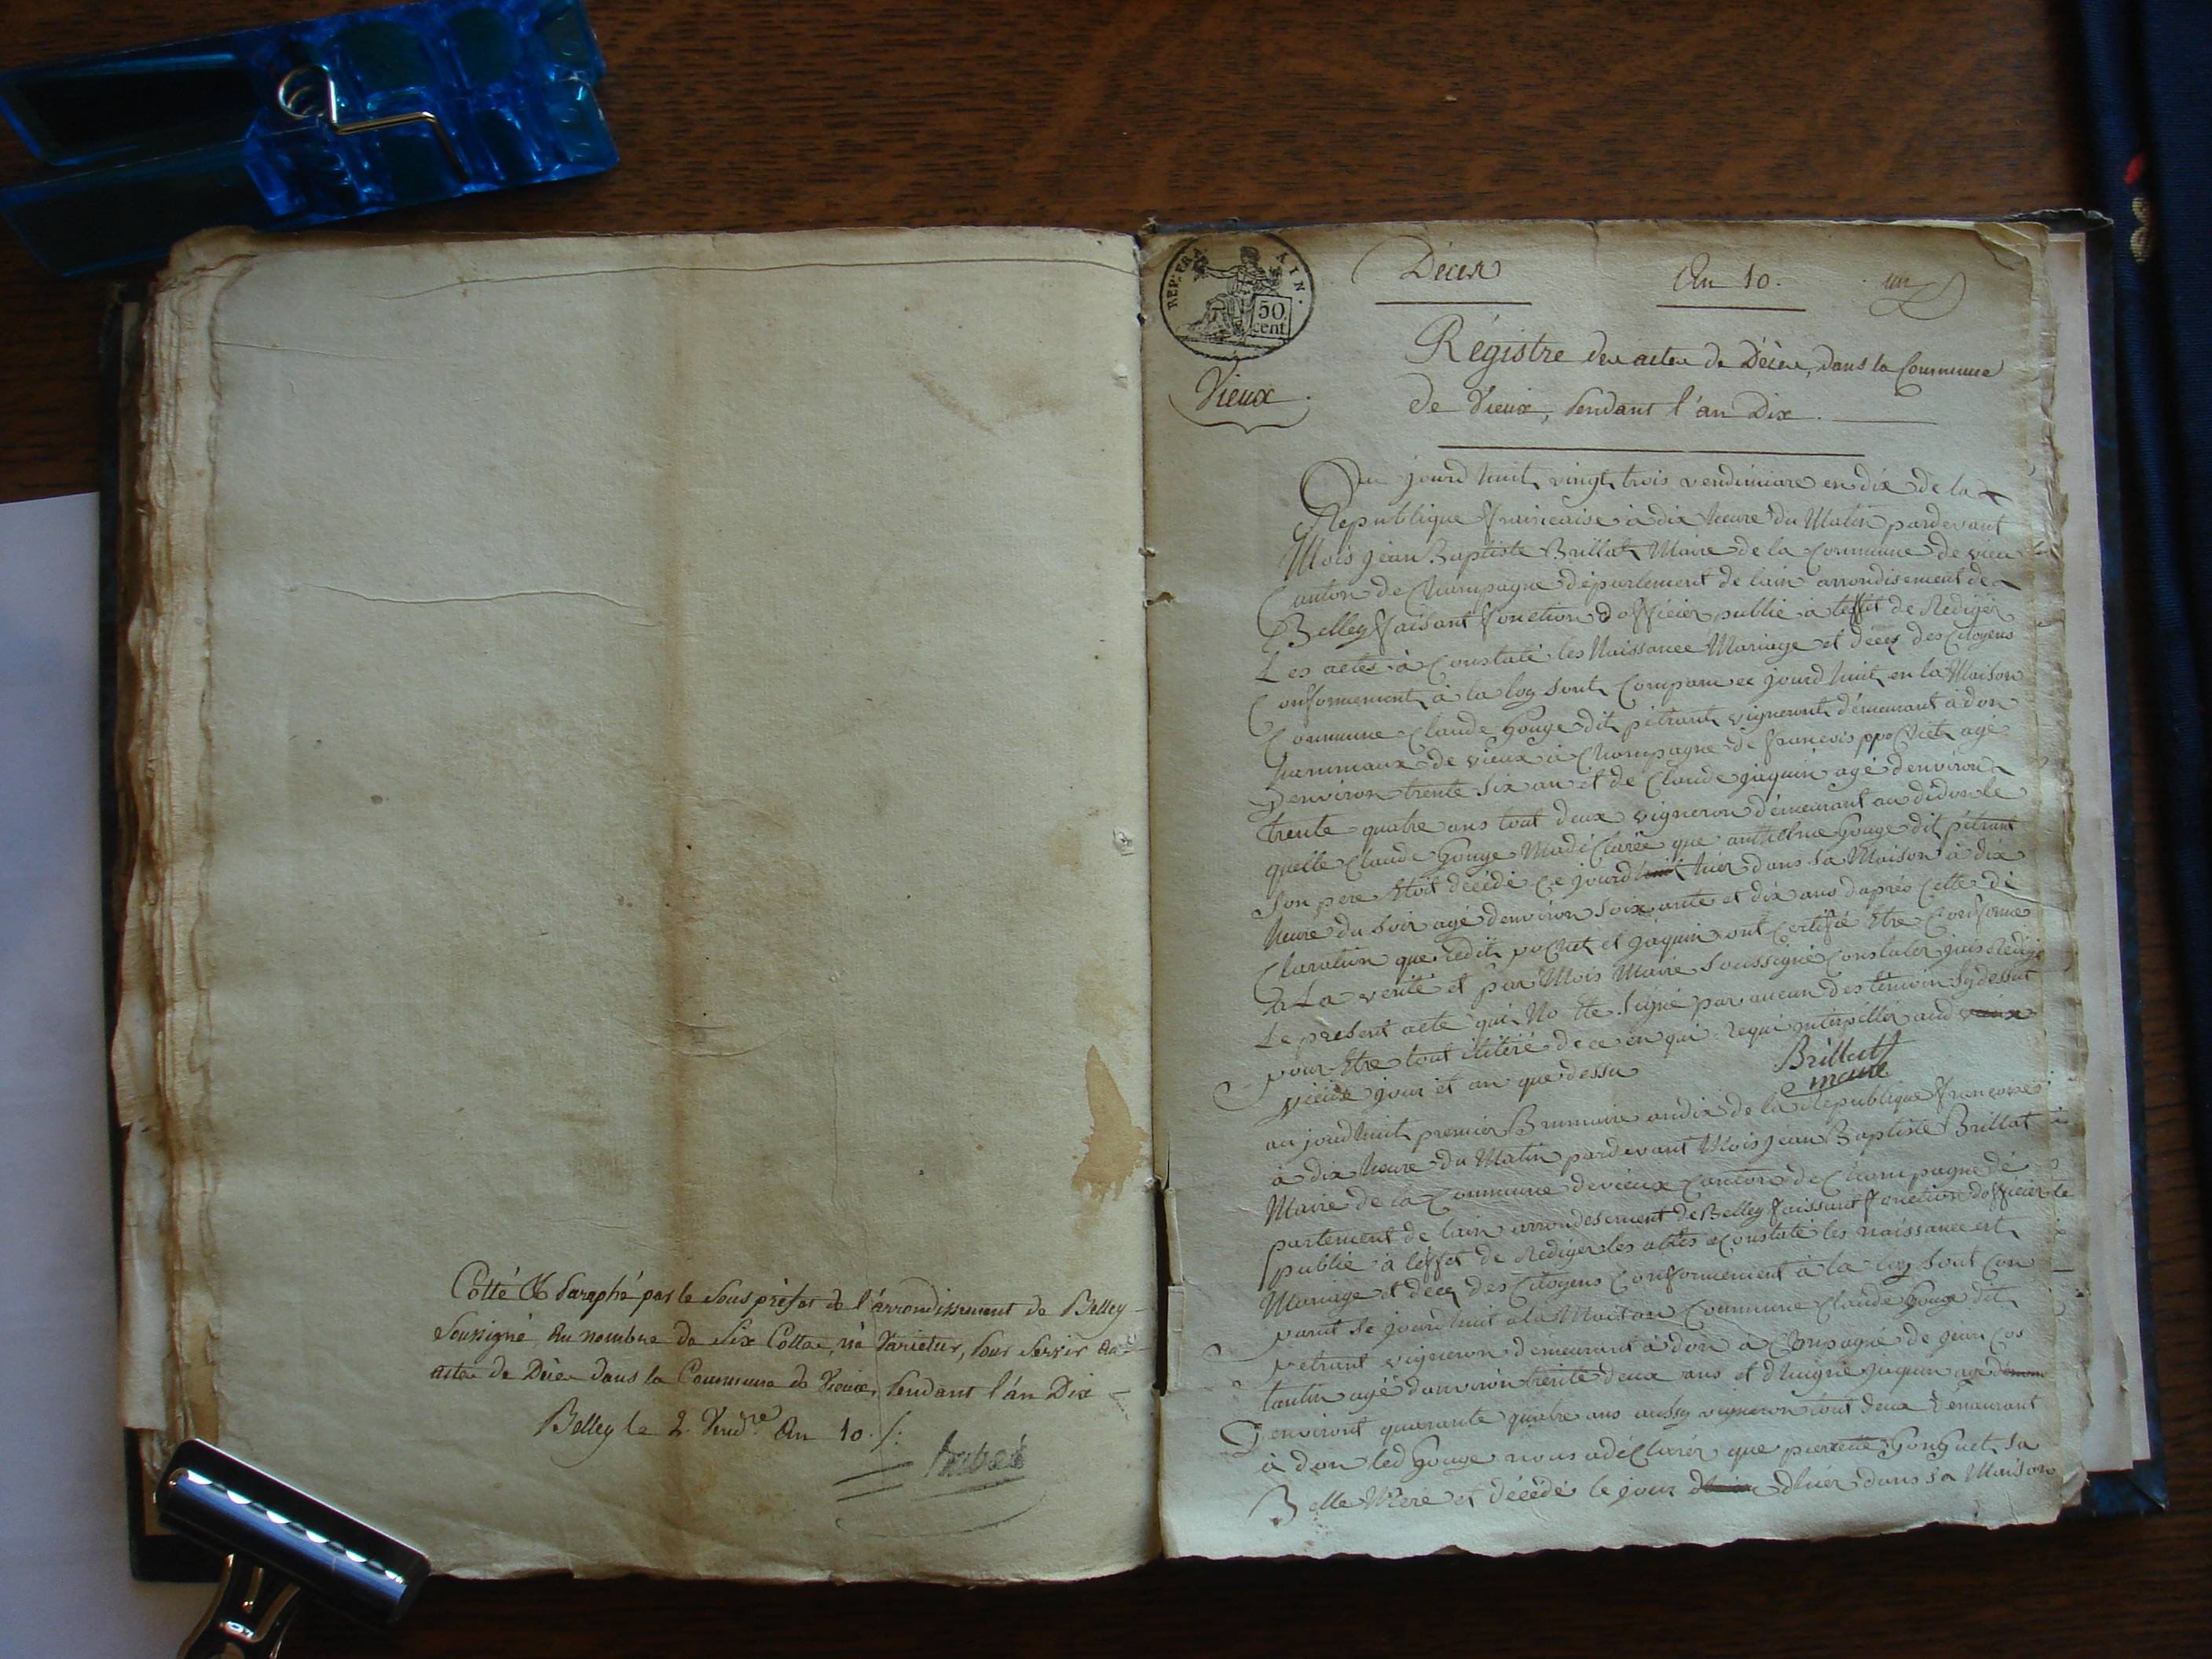 Cotté & Paraphé par le Sous préfet de l'arrondissement de Belley
Soussigné, au nombre de Six Cottes, né Varietur, pour servir aux
actes de Décès dans la Commune de Vieux, pendant l'an Dix
Belley le 2. Vend.re An 10 ./.
REP. FRA. AIN.
50
cent
Décès
An 10.
un
Vieux
Régistre des actes de Décès, dans la Commune
de Vieux, pendant l'an Dix.
Au jourd huit vingt trois vendimiare en dix de la
Republique francaise à dix heure du Matin pardevant
Mois jean Baptiste Brillat Maire de la Commune de vieu
Canton de Champagne département de lain arrondisement de
Belley faisant fonction dofficier public à leffet de Redigér
Les actes à Constaté les Naissance Mariage et décès des Citoyens
Conformement à la loy sont Comparu ce jourd huit en la Maison
Commune Claude gouge dit pétrant vigneront démeurant à don
hammaux de vieux à Champagne de francois ppochet agé
Denviron trente six an et de Claude jaquin agé denviron
trente quatre ans tout deux vigneron démeurant au dédon le
quelle Claude gouge Madéclarée que anthelme gouge dit pétrant
Son pere Etoit décédé Ce jourd huit hier dans sa Maison à dix
heure du soir agé denviron soixante et dix ans daprés Cette dé
Claration que ledit pochet et jaquin ont Certifié Etre Conforme
a La verité et par Mois Maire soussigné Constater jais Redigé
Le present acte qui No tte signé par aucun des temoin sy dessut
pour Etre tout ilitéré de ce en qui requi interpéllér aud vieux
vieux jour et an que dessu
Brillat
maire
au jourdhuit premier Brumaire andix de la Republique francoise
à dix heure du Matin pardevant Mois jean Baptiste Brillat
Maire de la Commune de vieux Canton de Champagne dé
partement de lain arrondesement de Belley faissant fonction dofficier
public à leffet de Rediger les actes a Constaté les naissance et
Mariage et décès des Citoyens Conformement à la loy sont Con
parut se jourdhuit a la Maison Commune Claude gouge dit
petrant vigneron démeurant à don à Chmpagne de jean Cos
tantin agé danviron trente deux ans et jaquin agé
Denviront quarante quatre ans aussy vigneron tout deux Demeurant
à don led gouge nous adéclarér que pierrette gonguet sa
Belle Mere et décédé le jour dhier dans sa Maison